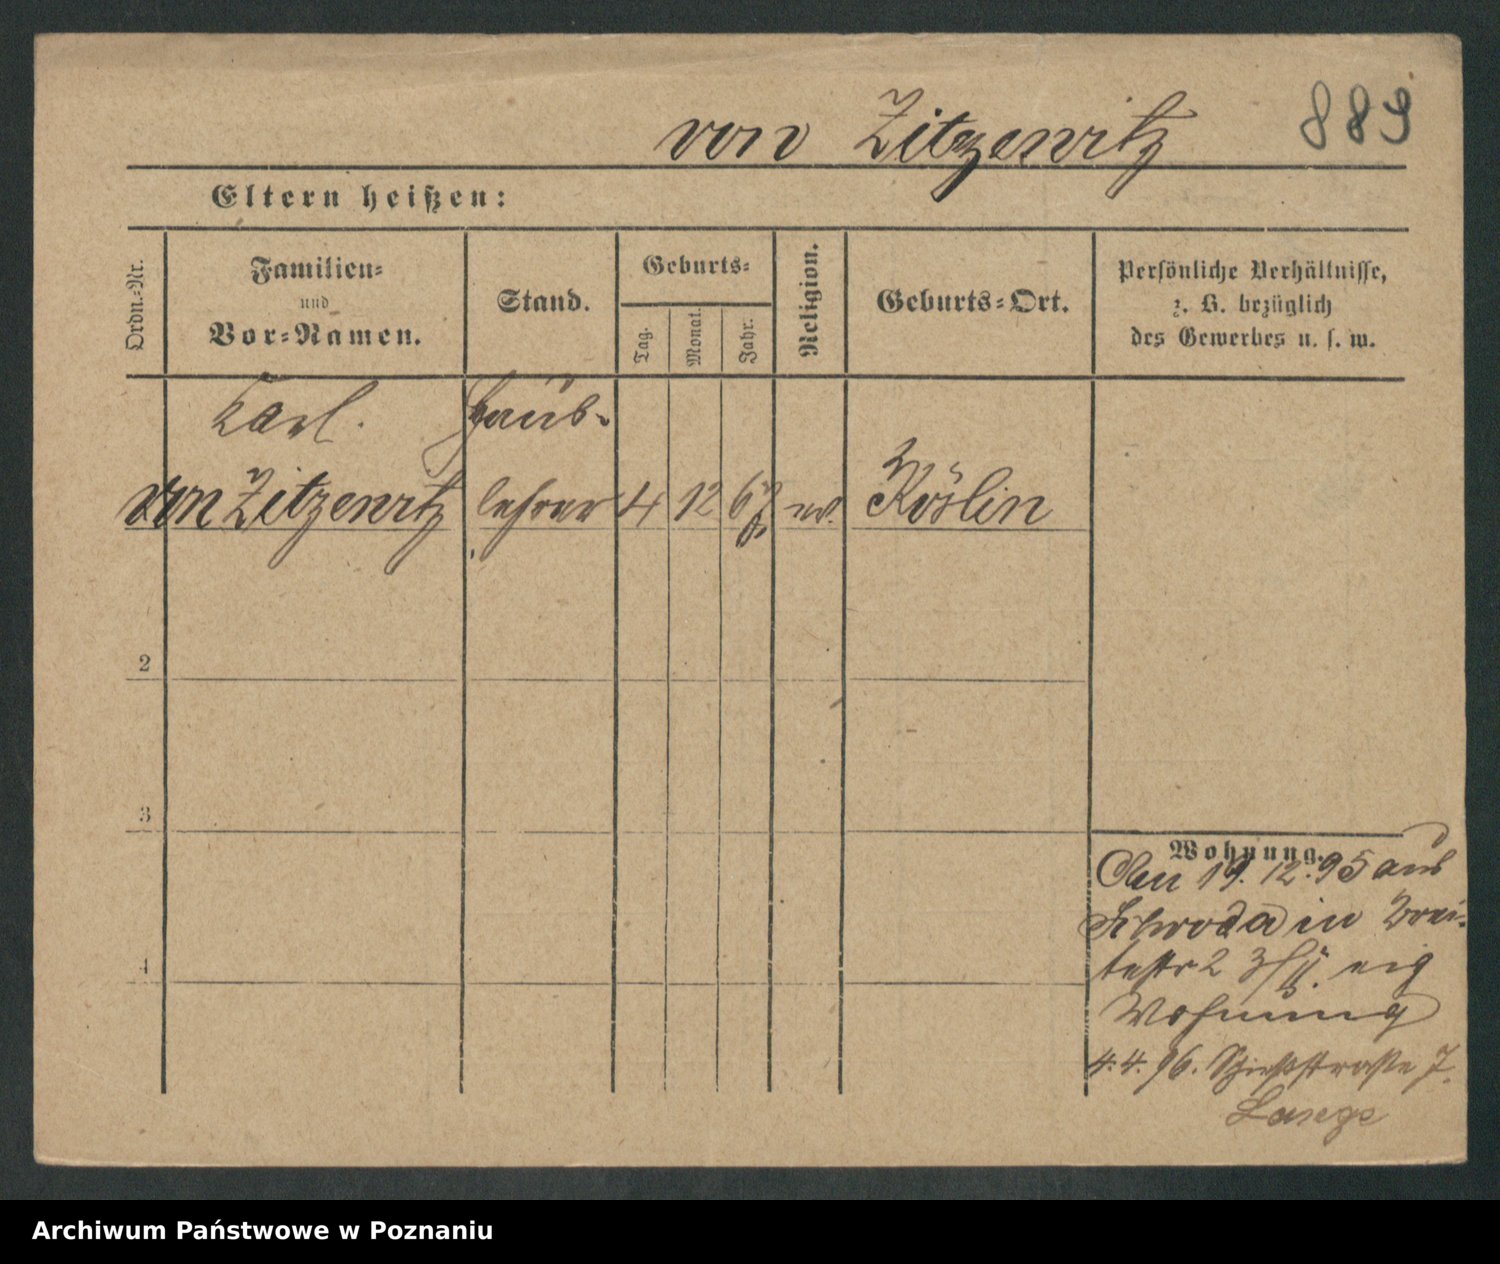 von Zitzewitz 889
Eltern heißen:
Ordn.-Nr.
Familien-
und
Vor-Namen.
Stand.
Geburts-
Tag.
Monat.
Jahr.
Religion.
Geburts-Ort.
Persönliche Verhältnisse,
z. B. bezüglich
des Gewerbes u. s. w.
Karl. Haus-
von Zitzewitz lehrer 4 12 67 ev. Köslin
2
3
4
Wohnung.
Am 19.12.95 aus
Schroda in Brei-
testr 2 eig
Wohnung
4.4.96. Schießstraße 7.
Lange
Archiwum Państwowe w Poznaniu